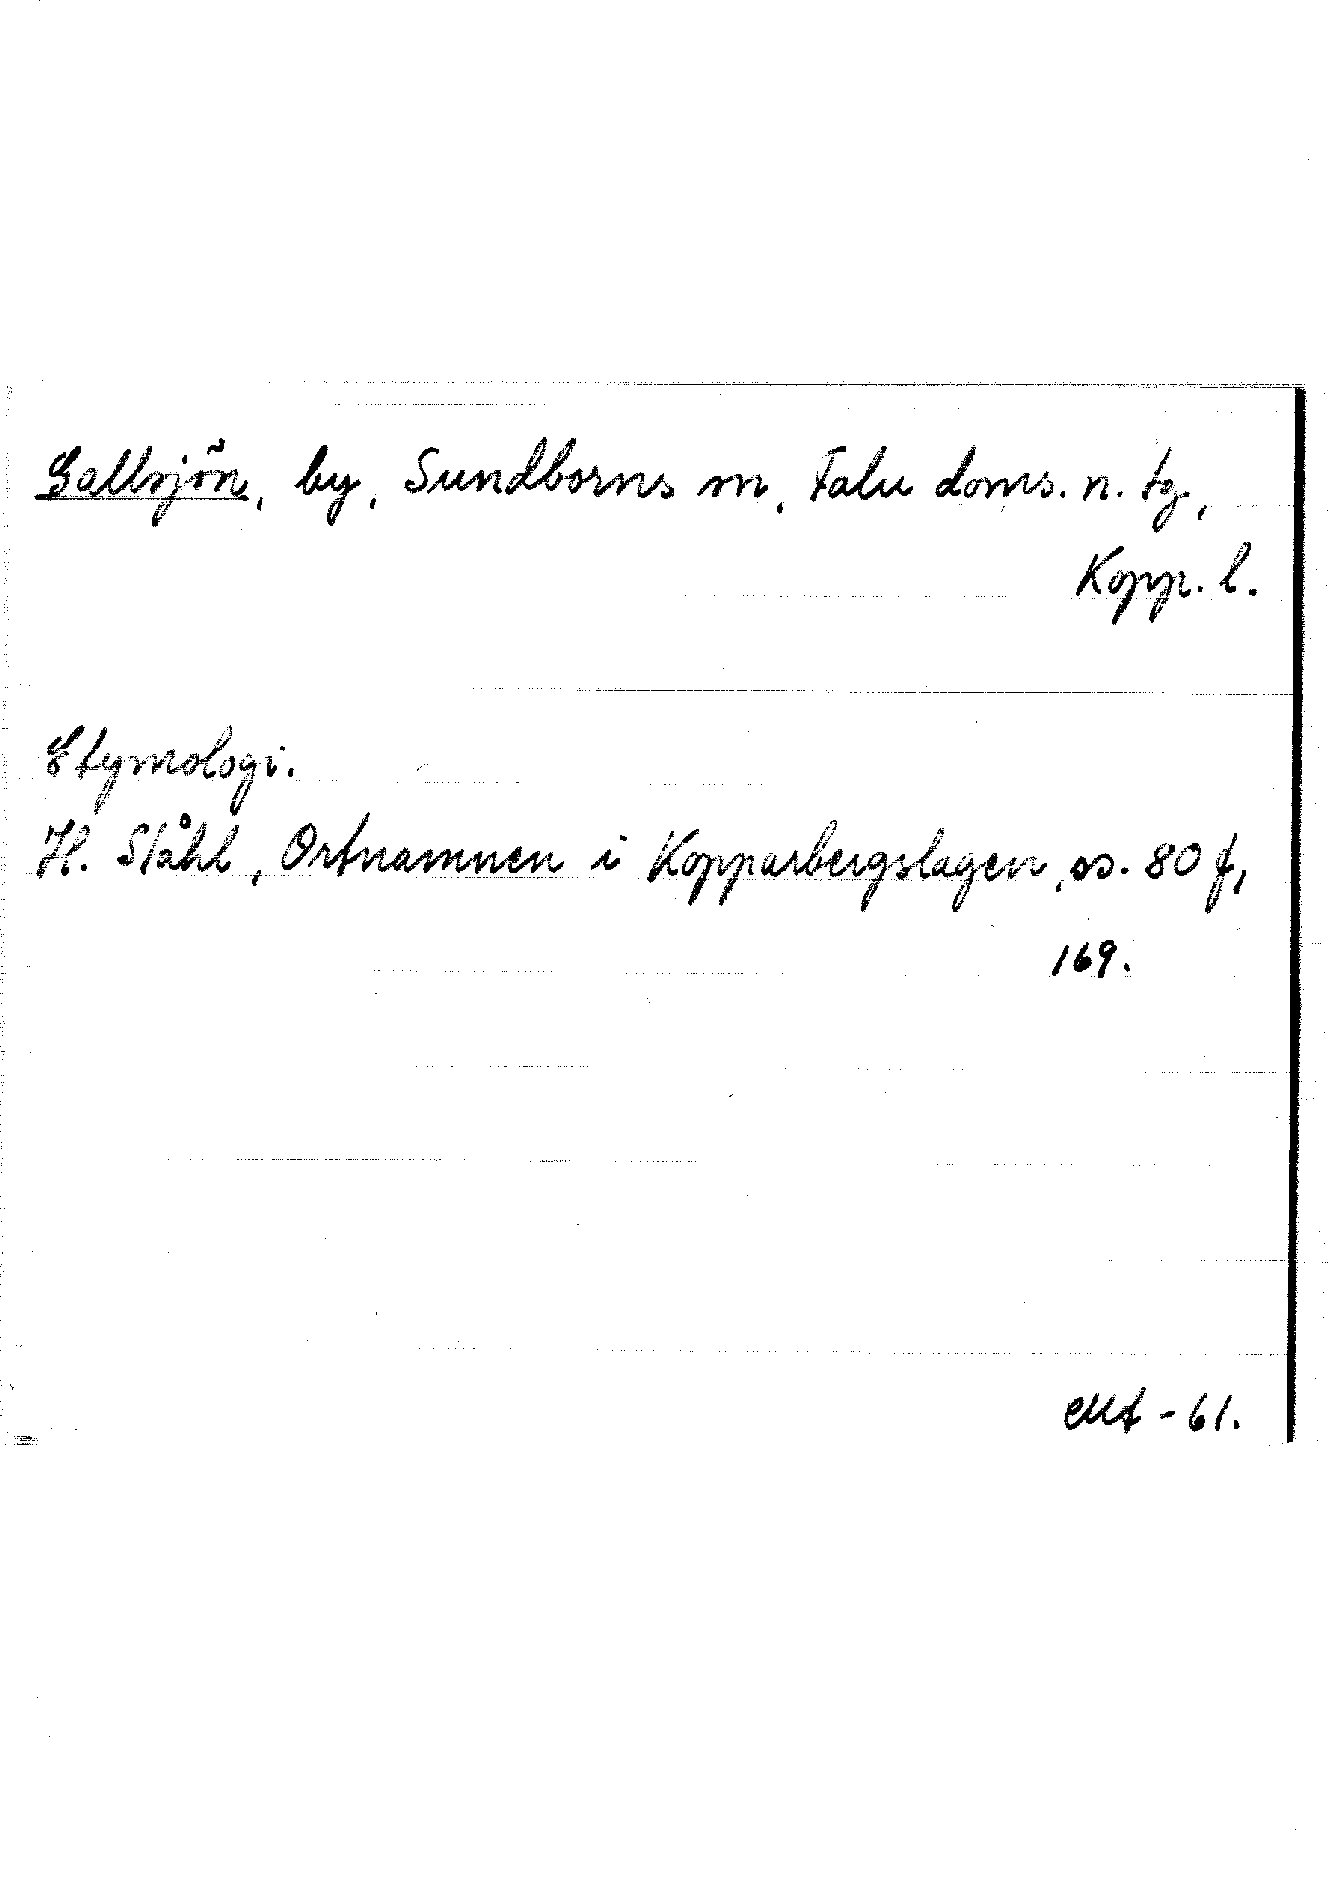 Gallsjön, by, Sundborns sn, Falu doms. n. tg,
Kopp. l.
Etymologi.
H. Ståhl, Ortnamnen i Kopparbergslagen, ss. 80 f,
169.
-61.